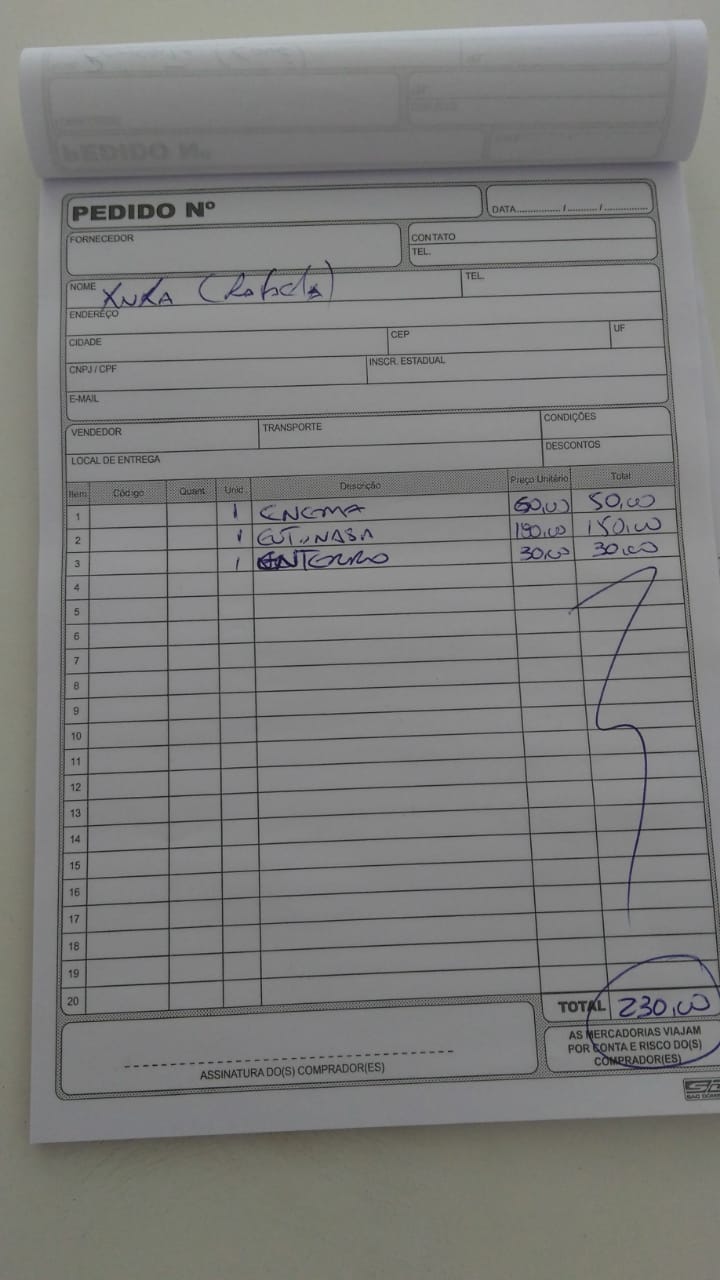 PEDIDO Nº
DATA............... / .......... / ...............
FORNECEDOR
CONTATO
TEL.
NOME XNXA (Rafaela)
TEL.
ENDEREÇO
CIDADE CEP UF
CNPJ / CPF INSCR. ESTADUAL
E-MAIL
VENDEDOR TRANSPORTE CONDIÇÕES
LOCAL DE ENTREGA DESCONTOS
Item Código Quant. Unid. Descrição Preço Unitário Total
1 1 ENEMA 50,00
2 1 150,00
3 1 ENTERRO 30,00 30,00
4
5
6
7
8
9
10
11
12
13
14
15
16
17
18
19
20
TOTAL 230,00
AS MERCADORIAS VIAJAM
POR CONTA E RISCO DO(S)
COMPRADOR(ES)
ASSINATURA DO(S) COMPRADOR(ES)